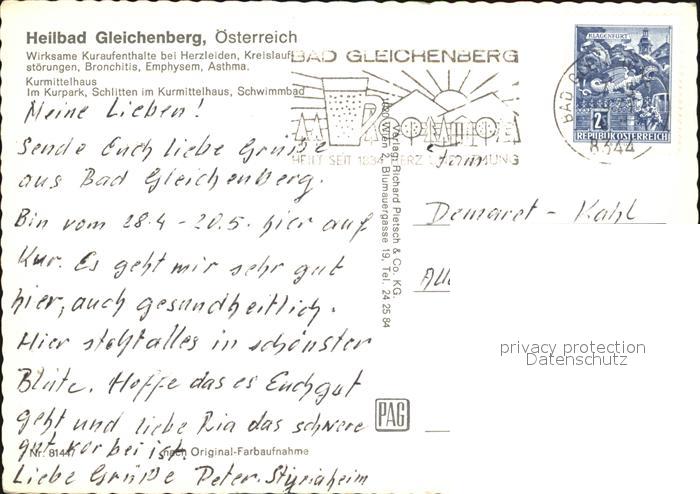 Heilbad Gleichenberg, Österreich
Wirksame Kuraufenthalte bei Herzleiden, Kreislauf-
störungen, Bronchitis, Emphysem, Asthma.
Kurmittelhaus
Im Kurpark, Schlitten im Kurmittelhaus, Schwimmbad
Meine Lieben!
Sende Euch liebe Grüße
aus Bad Gleichenberg.
Bin vom 28.4 - 20.5. hier auf
Kur. Es geht mir sehr gut
hier, auch gesundheitlich.
Hier steht alles in schönster
Blüte. Hoffe das es Euch gut
geht und liebe Ria das schwere
gut vorbei ist.
Liebe Grüße Peter. Styriaheim
Nr. 81447 nach Original-Farbaufnahme
BAD GLEICHENBERG
HEILT SEIT 1834 HERZ U. ATMUNG
Verlag Richard Pietsch & Co. KG.
1020 Wien 2, Blumauergasse 19, Tel. 24 25 84
PAG
KLAGENFURT
2
REPUBLIK ÖSTERREICH
BAD
8344
Fam
Demaret - Kahl
privacy protection
Datenschutz